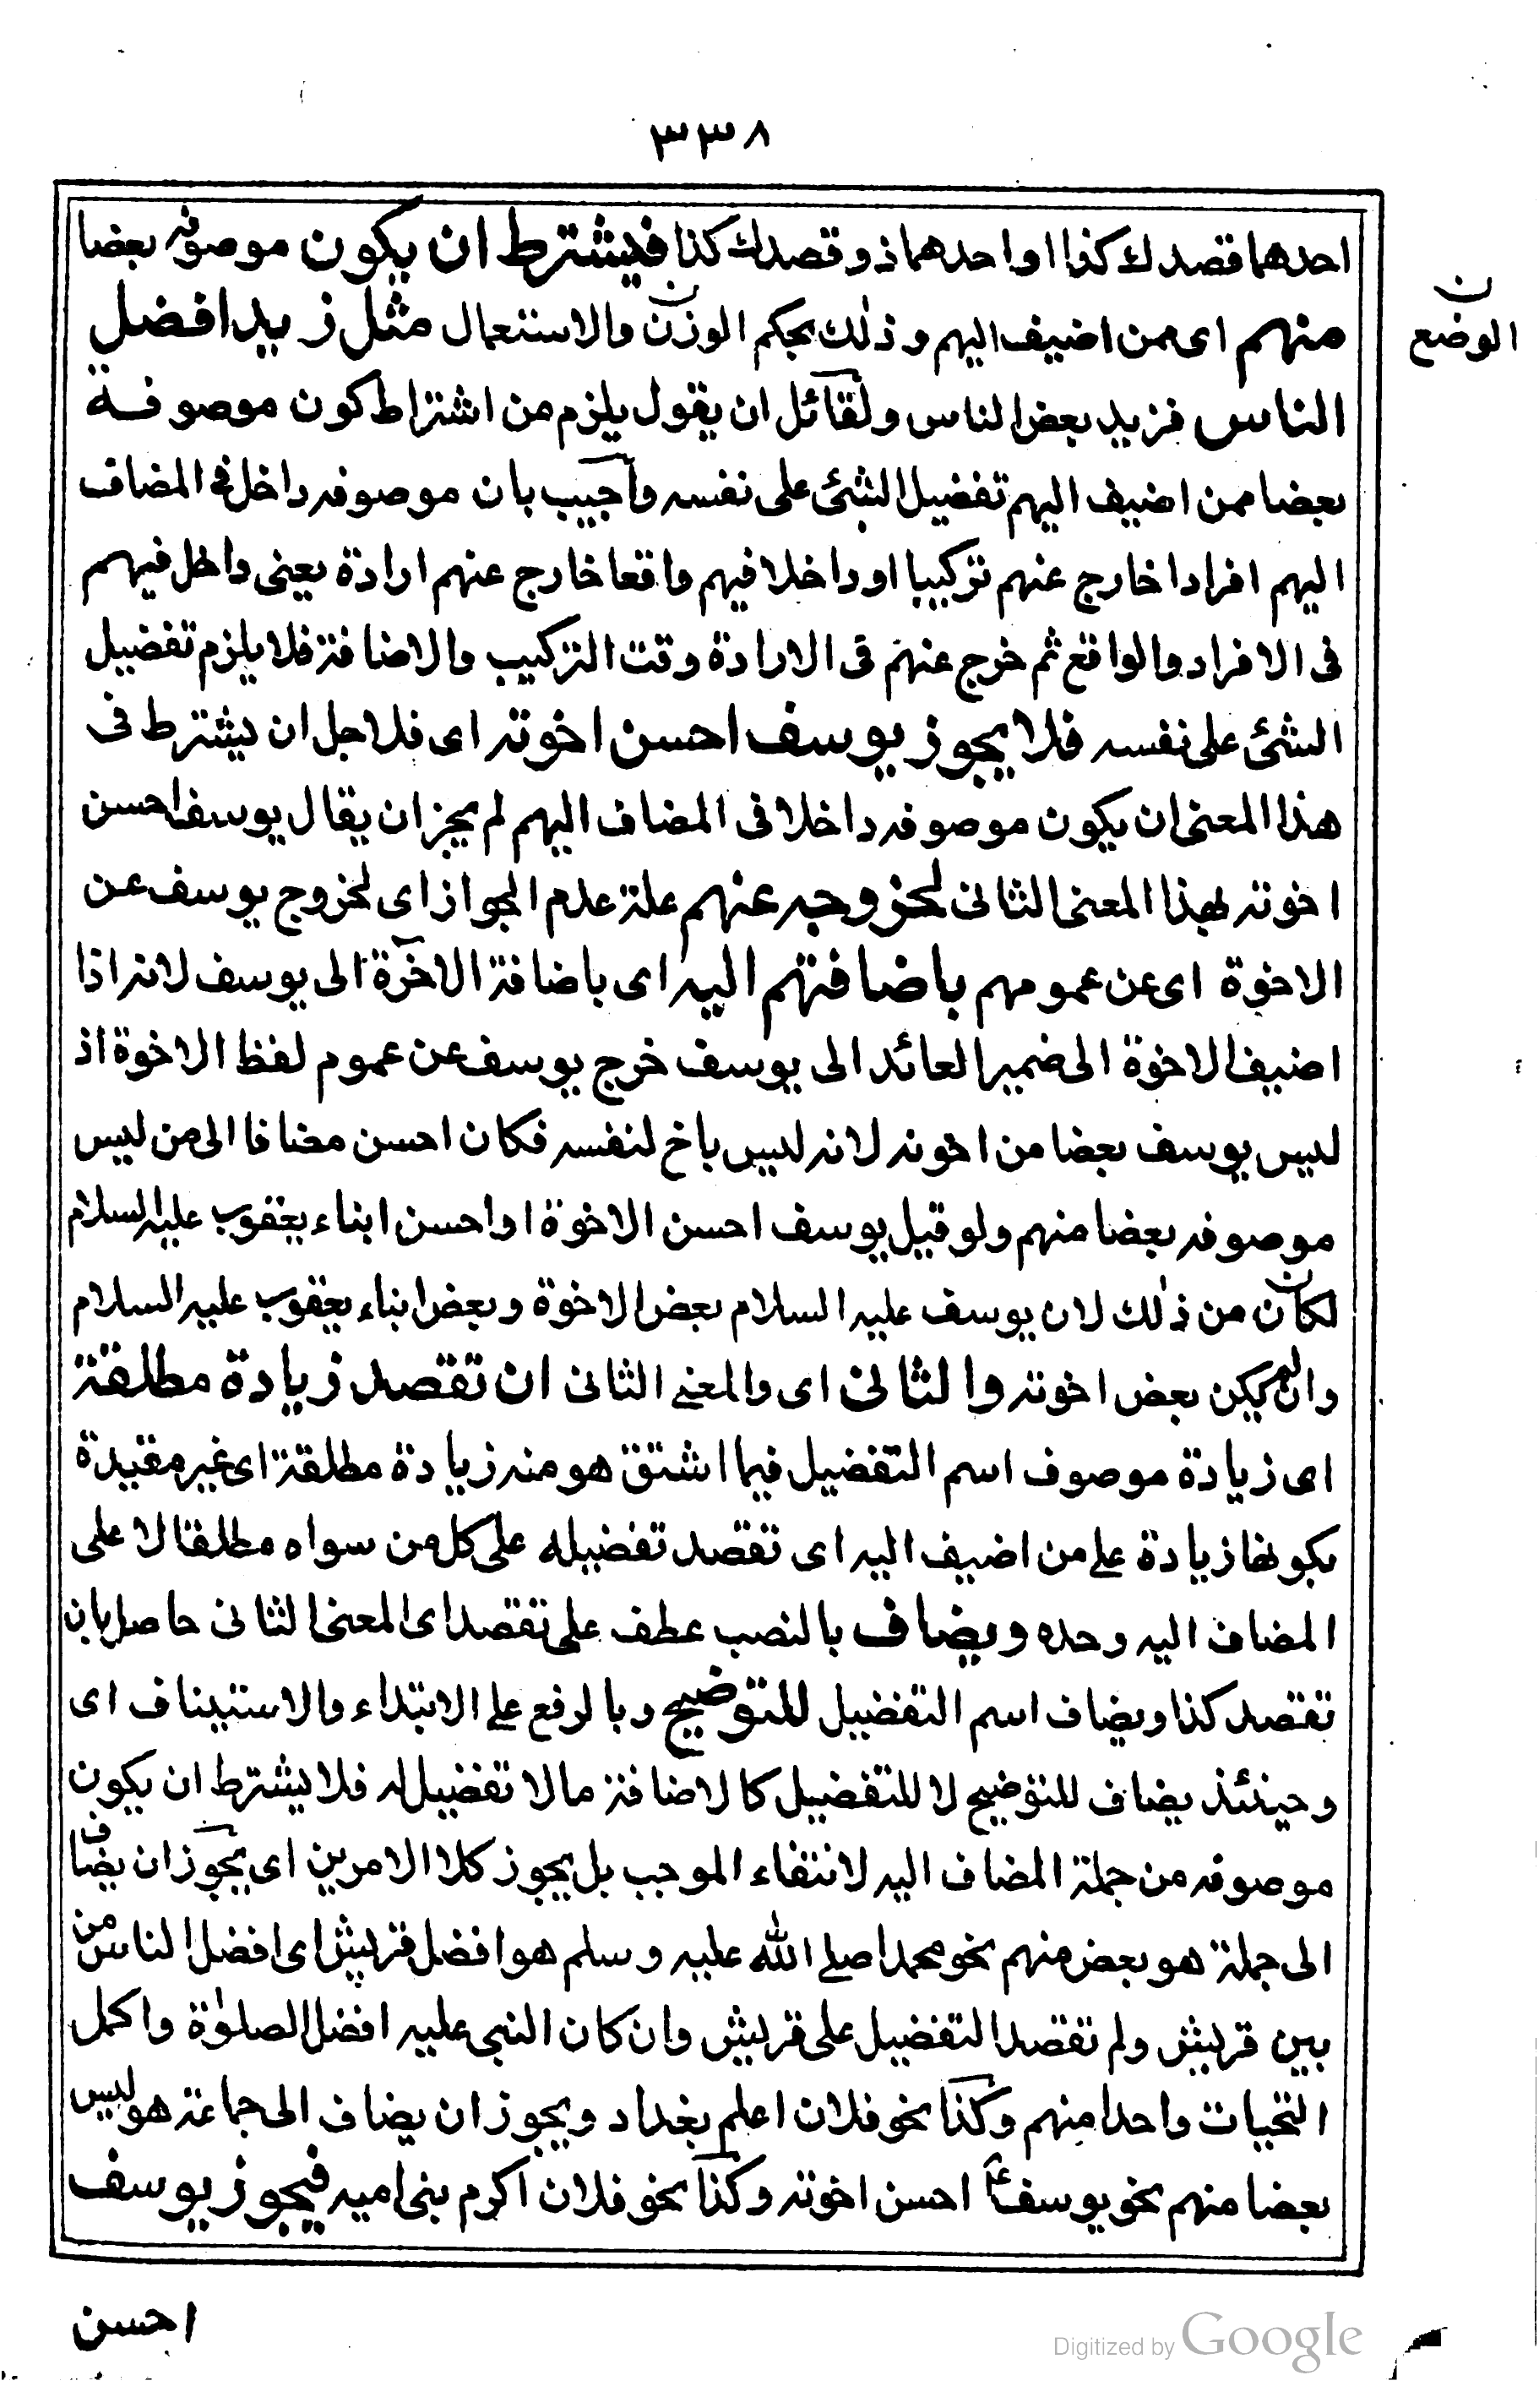 ٣٣٨
احدهما قصدك كذا او احدهما ذو قصدك كذا فيشترط ان يكون موصوفه بعضا
منهم اى ممن اضيف اليهم و ذلك بحكم الوزن والاستعمال مثل زيد افضل
ن
الوضع
الناس فزيد بعض الناس ولقائل ان يقول يلزم من اشتراط كون موصوفه
بعضا ممن اضيف اليهم تفضيل الشئ على نفسه واجيب بان موصوفه داخل فى المضاف
اليهم افرادا خارج عنهم تركيبا او داخلا فيهم واقعا خارج عنهم ارادة يعنى داخل فيهم
فى الافراد والواقع ثم خرج عنهم فى الارادة وقت التركيب والاضافة فلا يلزم تفضيل
الشئ على نفسه فلا يجوز يوسف احسن اخوته اى فلاجل ان يشترط فى
هذا المعنى ان يكون موصوفه داخلا فى المضاف اليهم لم يجز ان يقال يوسف احسن
اخوته بهذا المعنى الثانى لخروجه عنهم علة عدم الجواز اى لخروج يوسف عن
الاخوة اى عن عمومهم باضافتهم اليه اى باضافة الاخرة الى يوسف لانه اذا
اضيف الاخوة الى ضمير العائد الى يوسف خرج يوسف عن عموم لفظ الاخوة اذ
ليس يوسف بعضا من اخوته لانه ليس باخ لنفسه فكان احسن مضافا الى من ليس
موصوفه بعضا منهم ولو قيل يوسف احسن الاخوة او احسن ابناء يعقوب عليه السلام
لكان من ذلك لان يوسف عليه السلام بعض الاخوة و بعض ابناء يعقوب عليه السلام
وان لم يكن بعض اخوته والثانى اى والمعنى الثانى ان تقصد زيادة مطلقة
اى زيادة موصوف اسم التفضيل فيما اشتق هو منه زيادة مطلقة اى غير مقيدة
بكونها زيادة على من اضيف اليه اى تقصد تفضيله على كل من سواه مطلقا لا على
المضاف اليه وحده ويضاف بالنصب عطف على تقصد اى المعنى الثانى حاصل بان
تقصد كذا ويضاف اسم التفضيل للتوضيح وبالرفع على الابتداء والاستيناف اى
وحينئذ يضاف للتوضيح لا للتفضيل كالاضافة مالا تفضيل له فلا يشترط ان يكون
موصوفه من جملة المضاف اليه لانتفاء الموجب بل يجوز كلا الامرين اى يجوز ان يضاف
الى جملة هو بعض منهم نحو محمدا صلى الله عليه وسلم هو افضل قريش اى افضل الناس من
بين قريش ولم تقصد التفضيل على قريش وان كان النبى عليه افضل الصلوٰة واكمل
التحيات واحدا منهم وكذا نحو فلان اعلم بغداد ويجوز ان يضاف الى جماعة هو ليس
بعضا منهم نحو يوسف احسن اخوته وكذا نحو فلان اكرم بنى اميه فيجوز يوسف
احسن
Digitized by Google